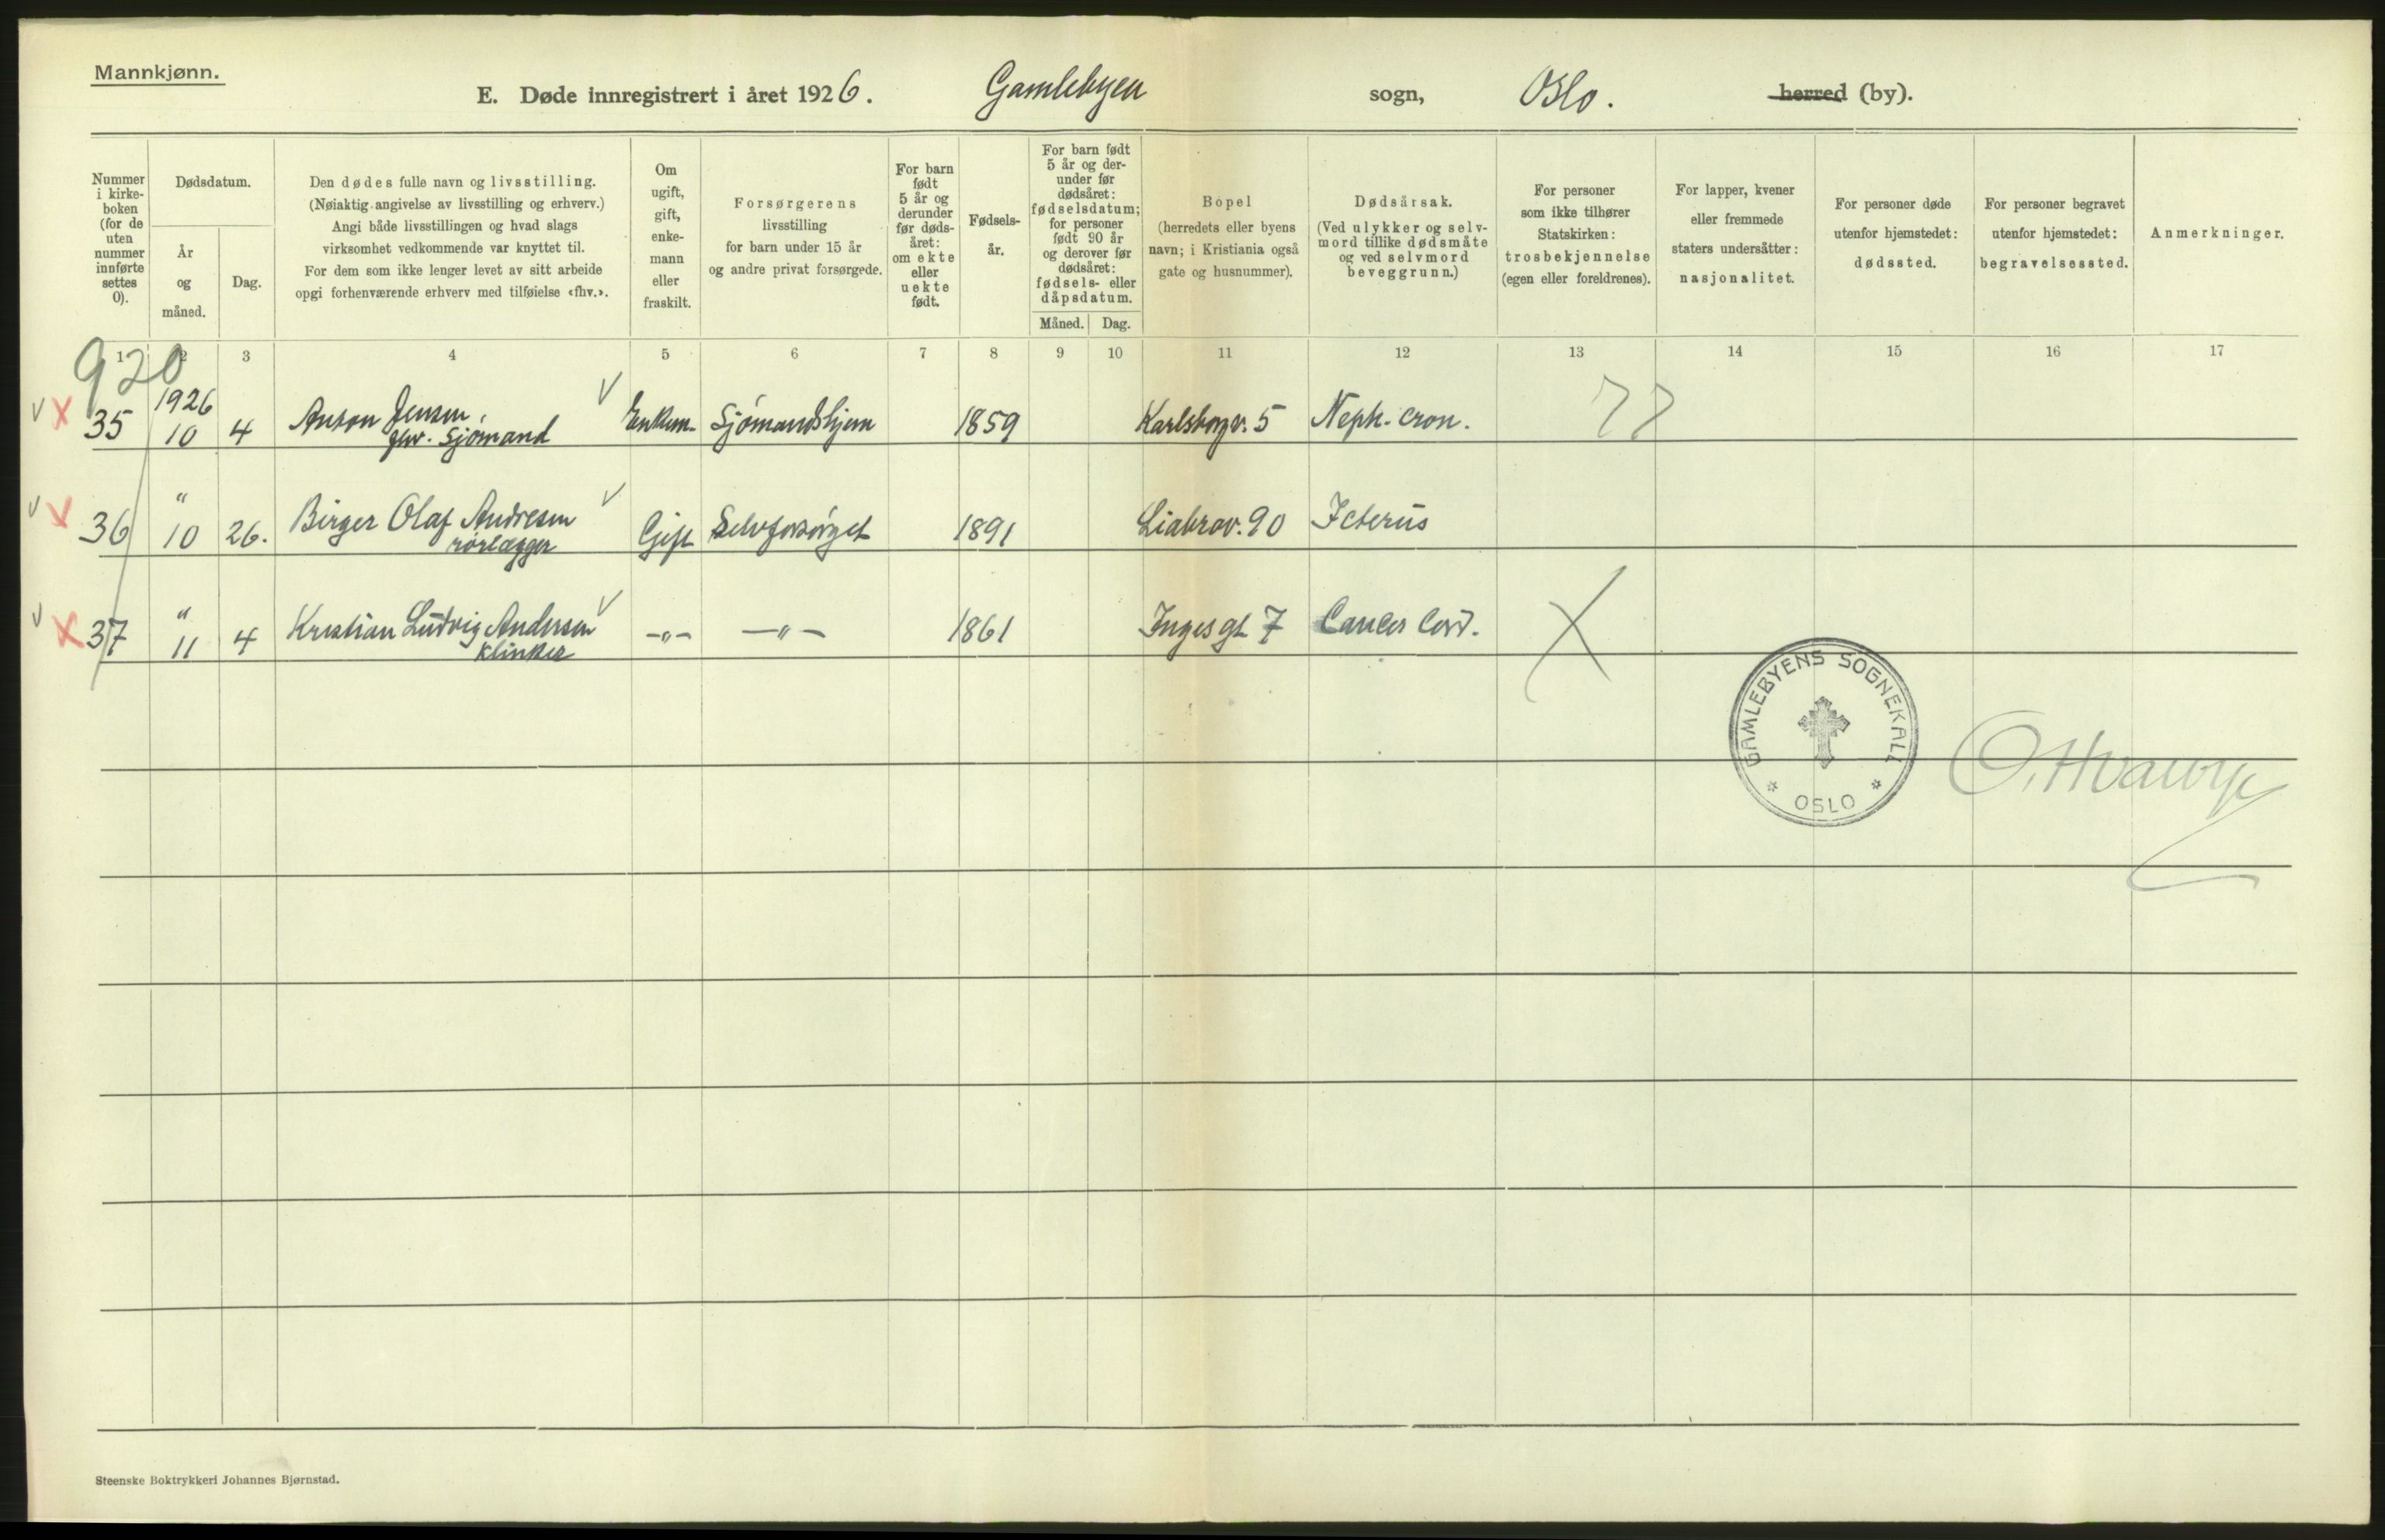 Mannkjønn.
E. Døde innregistrert i året 1926. Gamlebyen sogn, Oslo. herred (by).
Nummer i kirke- boken (for de uten nummer innførte settes 0).
Dødsdatum.
År og måned.
Dag.
Den dødes fulle navn og livsstilling.
(Nøiaktig angivelse av livsstilling og erhverv.)
Angi både livsstillingen og hvad slags
virksomhet vedkommende var knyttet til.
For dem som ikke lenger levet av sitt arbeide
opgi forhenværende erhverv med tilføielse «fhv.».
Om ugift, gift, enke- mann eller fraskilt.
Forsørgerens
livsstilling
for barn under 15 år
og andre privat forsørgede.
For barn født 5 år og derunder før døds- året: om ekte eller uekte født.
Fødsels- år.
For barn født 5 år og der- under før dødsåret: fødselsdatum; for personer født 90 år og derover før dødsåret: fødsels- eller dåpsdatum.
Måned. Dag.
Bopel
(herredets eller byens
navn; i Kristiania også
gate og husnummer).
Dødsårsak.
(Ved ulykker og selv-
mord tillike dødsmåte
og ved selvmord
beveggrunn.)
For personer
som ikke tilhører
Statskirken:
trosbekjennelse
(egen eller foreldrenes).
For lapper, kvener
eller fremmede
staters undersåtter:
nasjonalitet.
For personer døde
utenfor hjemstedet:
dødssted.
For personer begravet
utenfor hjemstedet:
begravelsessted.
Anmerkninger.
1 2 3 4 5 6 7 8 9 10 11 12 13 14 15 16 17
920
35 1926 10 4 Anton Jensen, fhv. sjømand Enkem. Sjømandshjem 1859 Karlsborgv. 5 Neph. cron. 77
36 " 10 26. Birger Olaf Andresen rørlægger Gift Selvforsørget 1891 Liabrov. 90 Icterus
37 " 11 4 Kristian Ludvig Andersen Klinker -"- -"- 1861 Ingesgt 7 Cancer Cord.
GAMLEBYENS SOGNEKALL
* OSLO *
Steenske Boktrykkeri Johannes Bjørnstad.